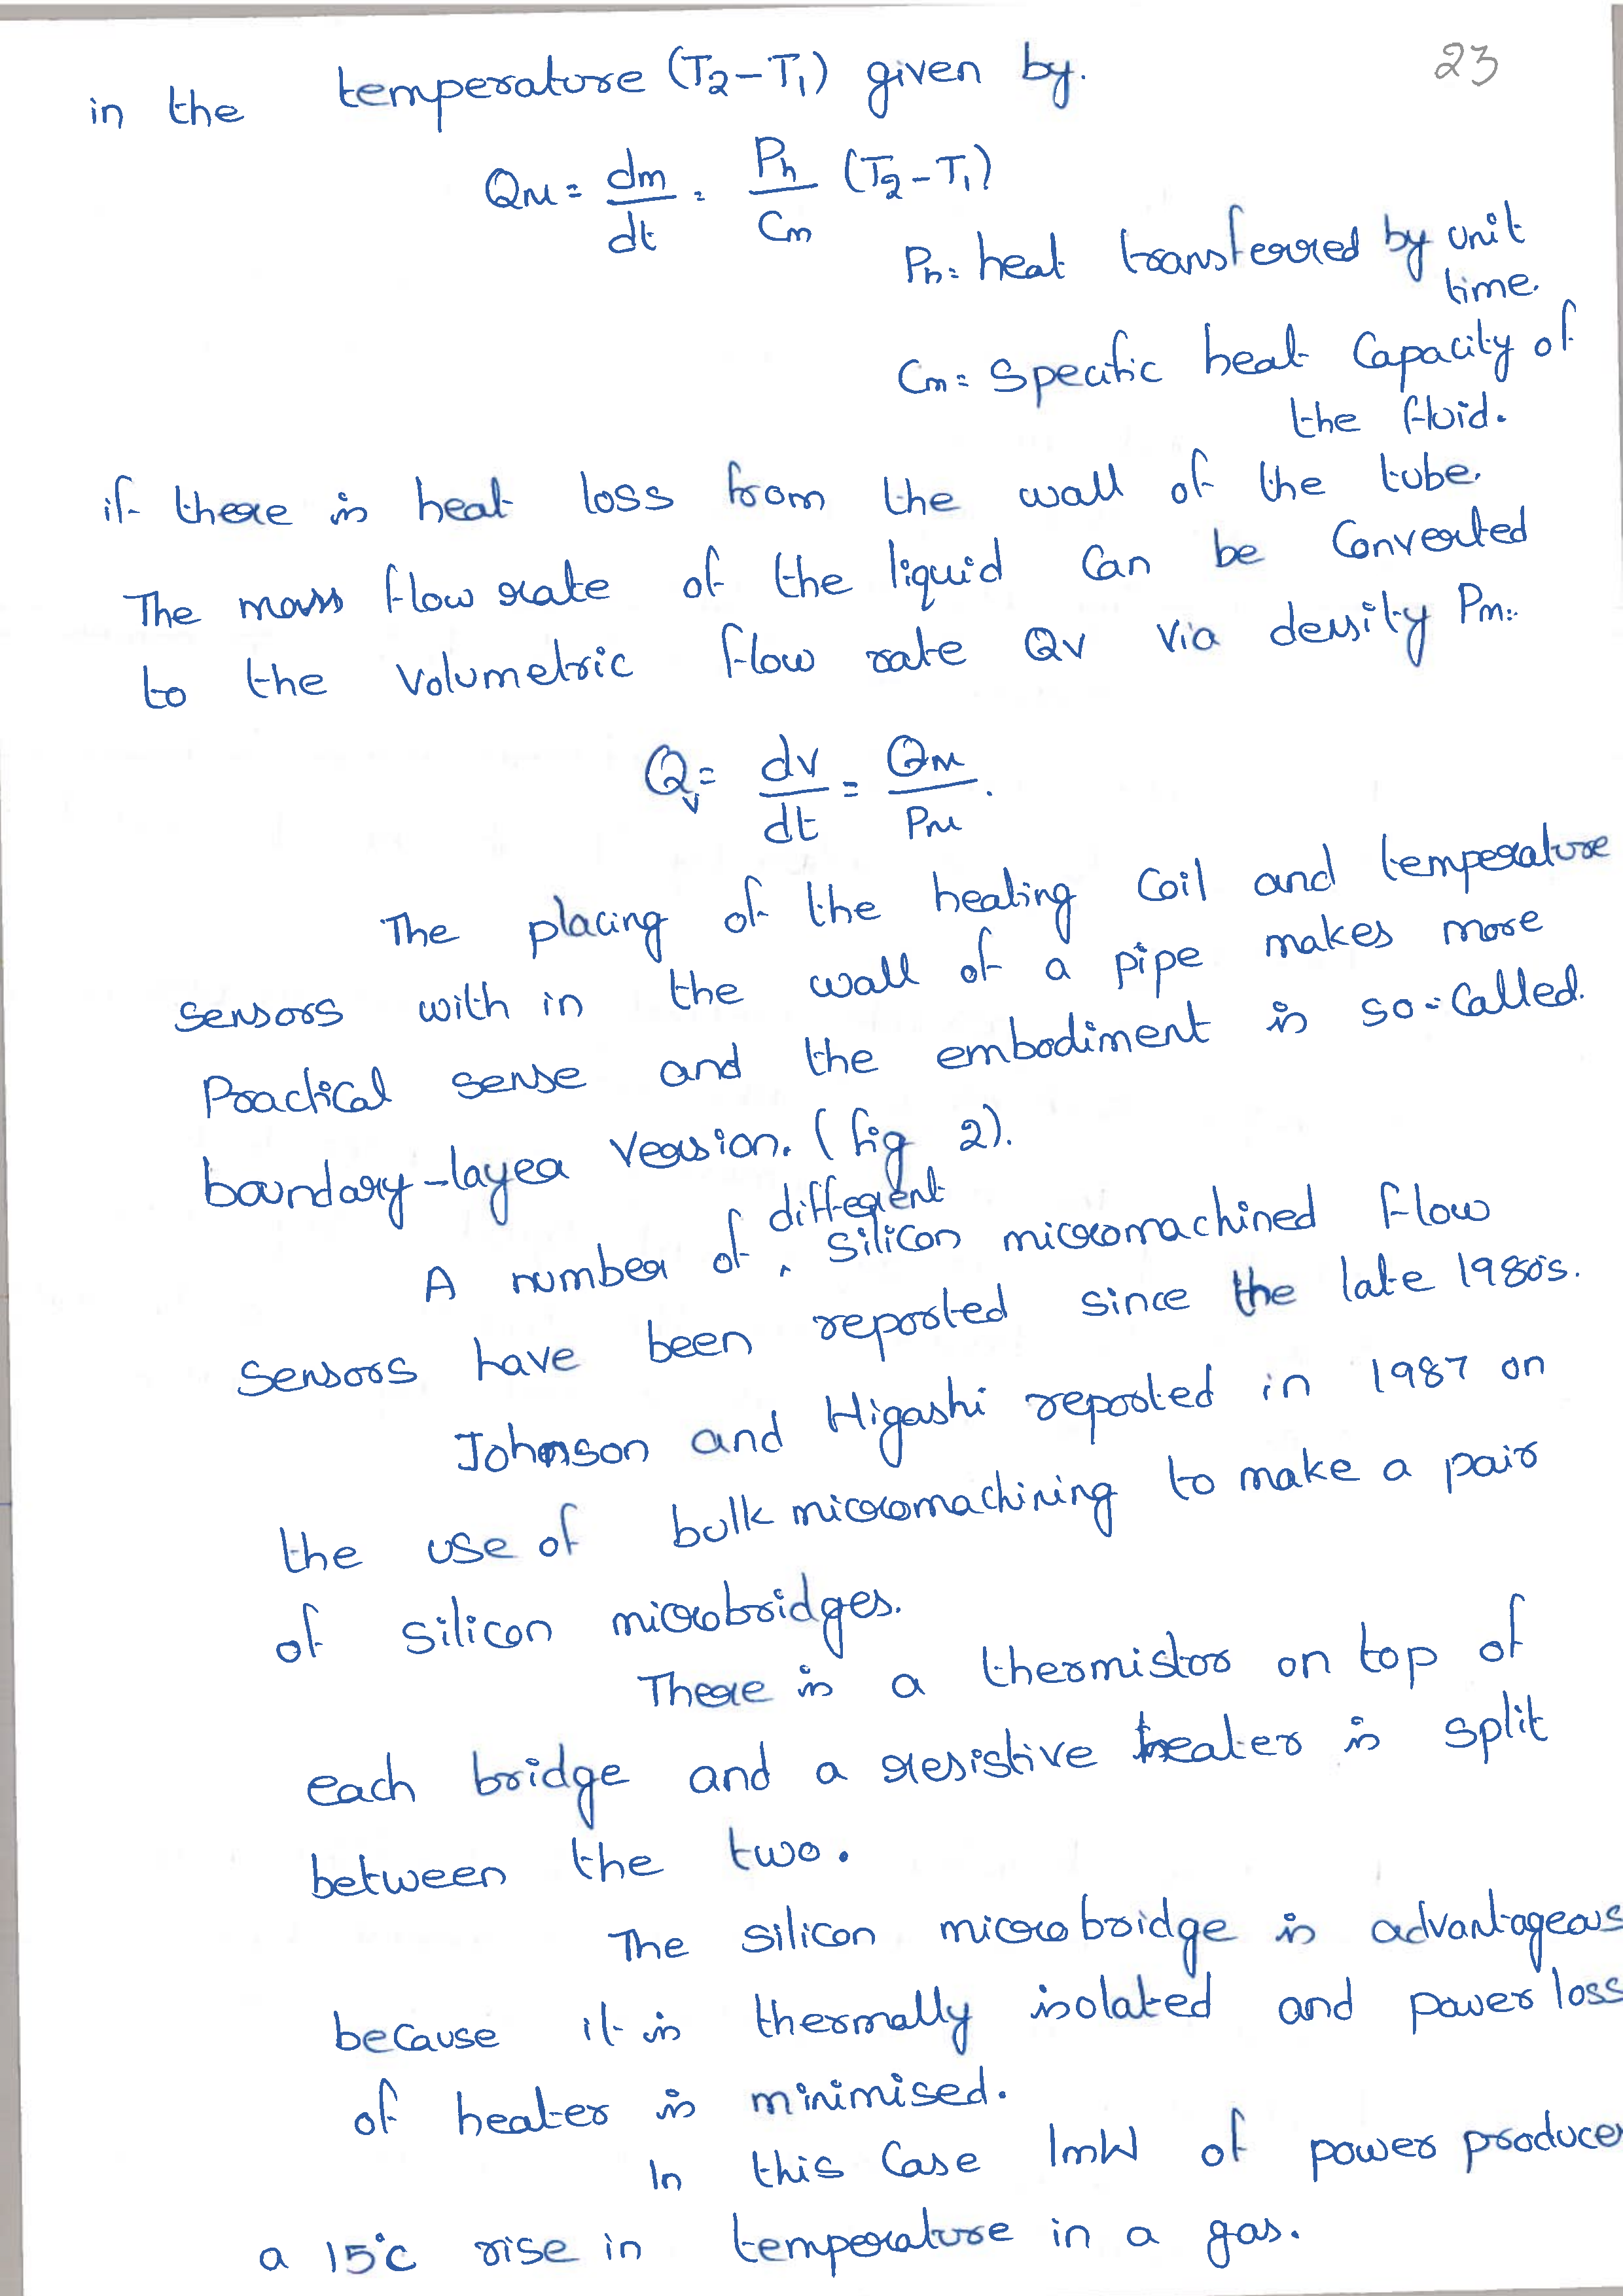 23
in the temperature (T2-T1) given by.
Qm = dm/dt = Ph/Cm (T2-T1)
Ph = heat transferred by unit
time.
Cm = Specific heat Capacity of
the fluid.
if there is heat loss from the wall of the tube.
The mass flow rate of the liquid Can be Converted
to the Volumetric flow rate Qv Via density Pm:
Qv = dv/dt = Qm/Pm.
The placing of the heating Coil and temperature
sensors with in the wall of a pipe makes more
Practical sense and the embodiment is so-Called.
boundary-layer Version. (fig 2).
A number of different silicon micromachined flow
Sensors have been reported since the late 1980's.
Johnson and Higashi reported in 1987 on
the use of bulk micromachining to make a pair
of silicon microbridges.
There is a thermistor on top of
each bridge and a resistive heater is split
between the two.
The silicon microbridge is advantageous
because it is thermally isolated and power loss
of heater is minimised.
In this Case 1mW of power produce
a 15°c rise in temperature in a gas.